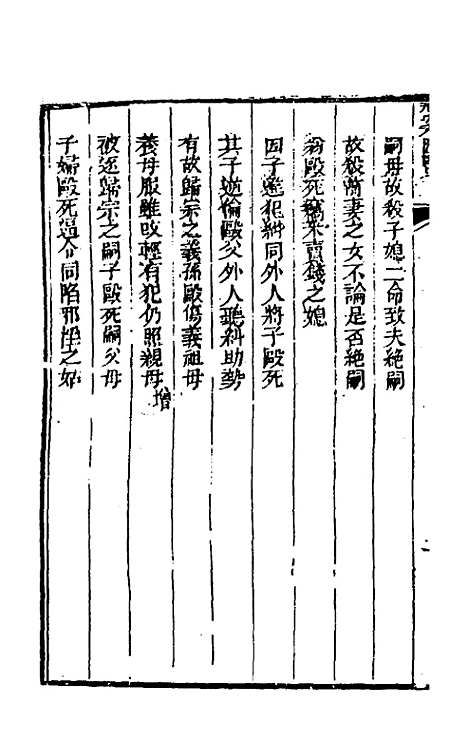 嗣母故殺子媳二命致夫絶嗣
故殺前妻之女不論是否絶嗣
翁毆死竊米賣錢之媳
因子違犯糾同外人將子毆死
其子逆倫毆父外人聽糾助勢
有故歸宗之義孫毆傷義祖母
義母服雖改輕有犯仍照親母 增
被逐歸宗之嗣子毆死嗣父母
子婦毆死逼令同陷邪淫之姑